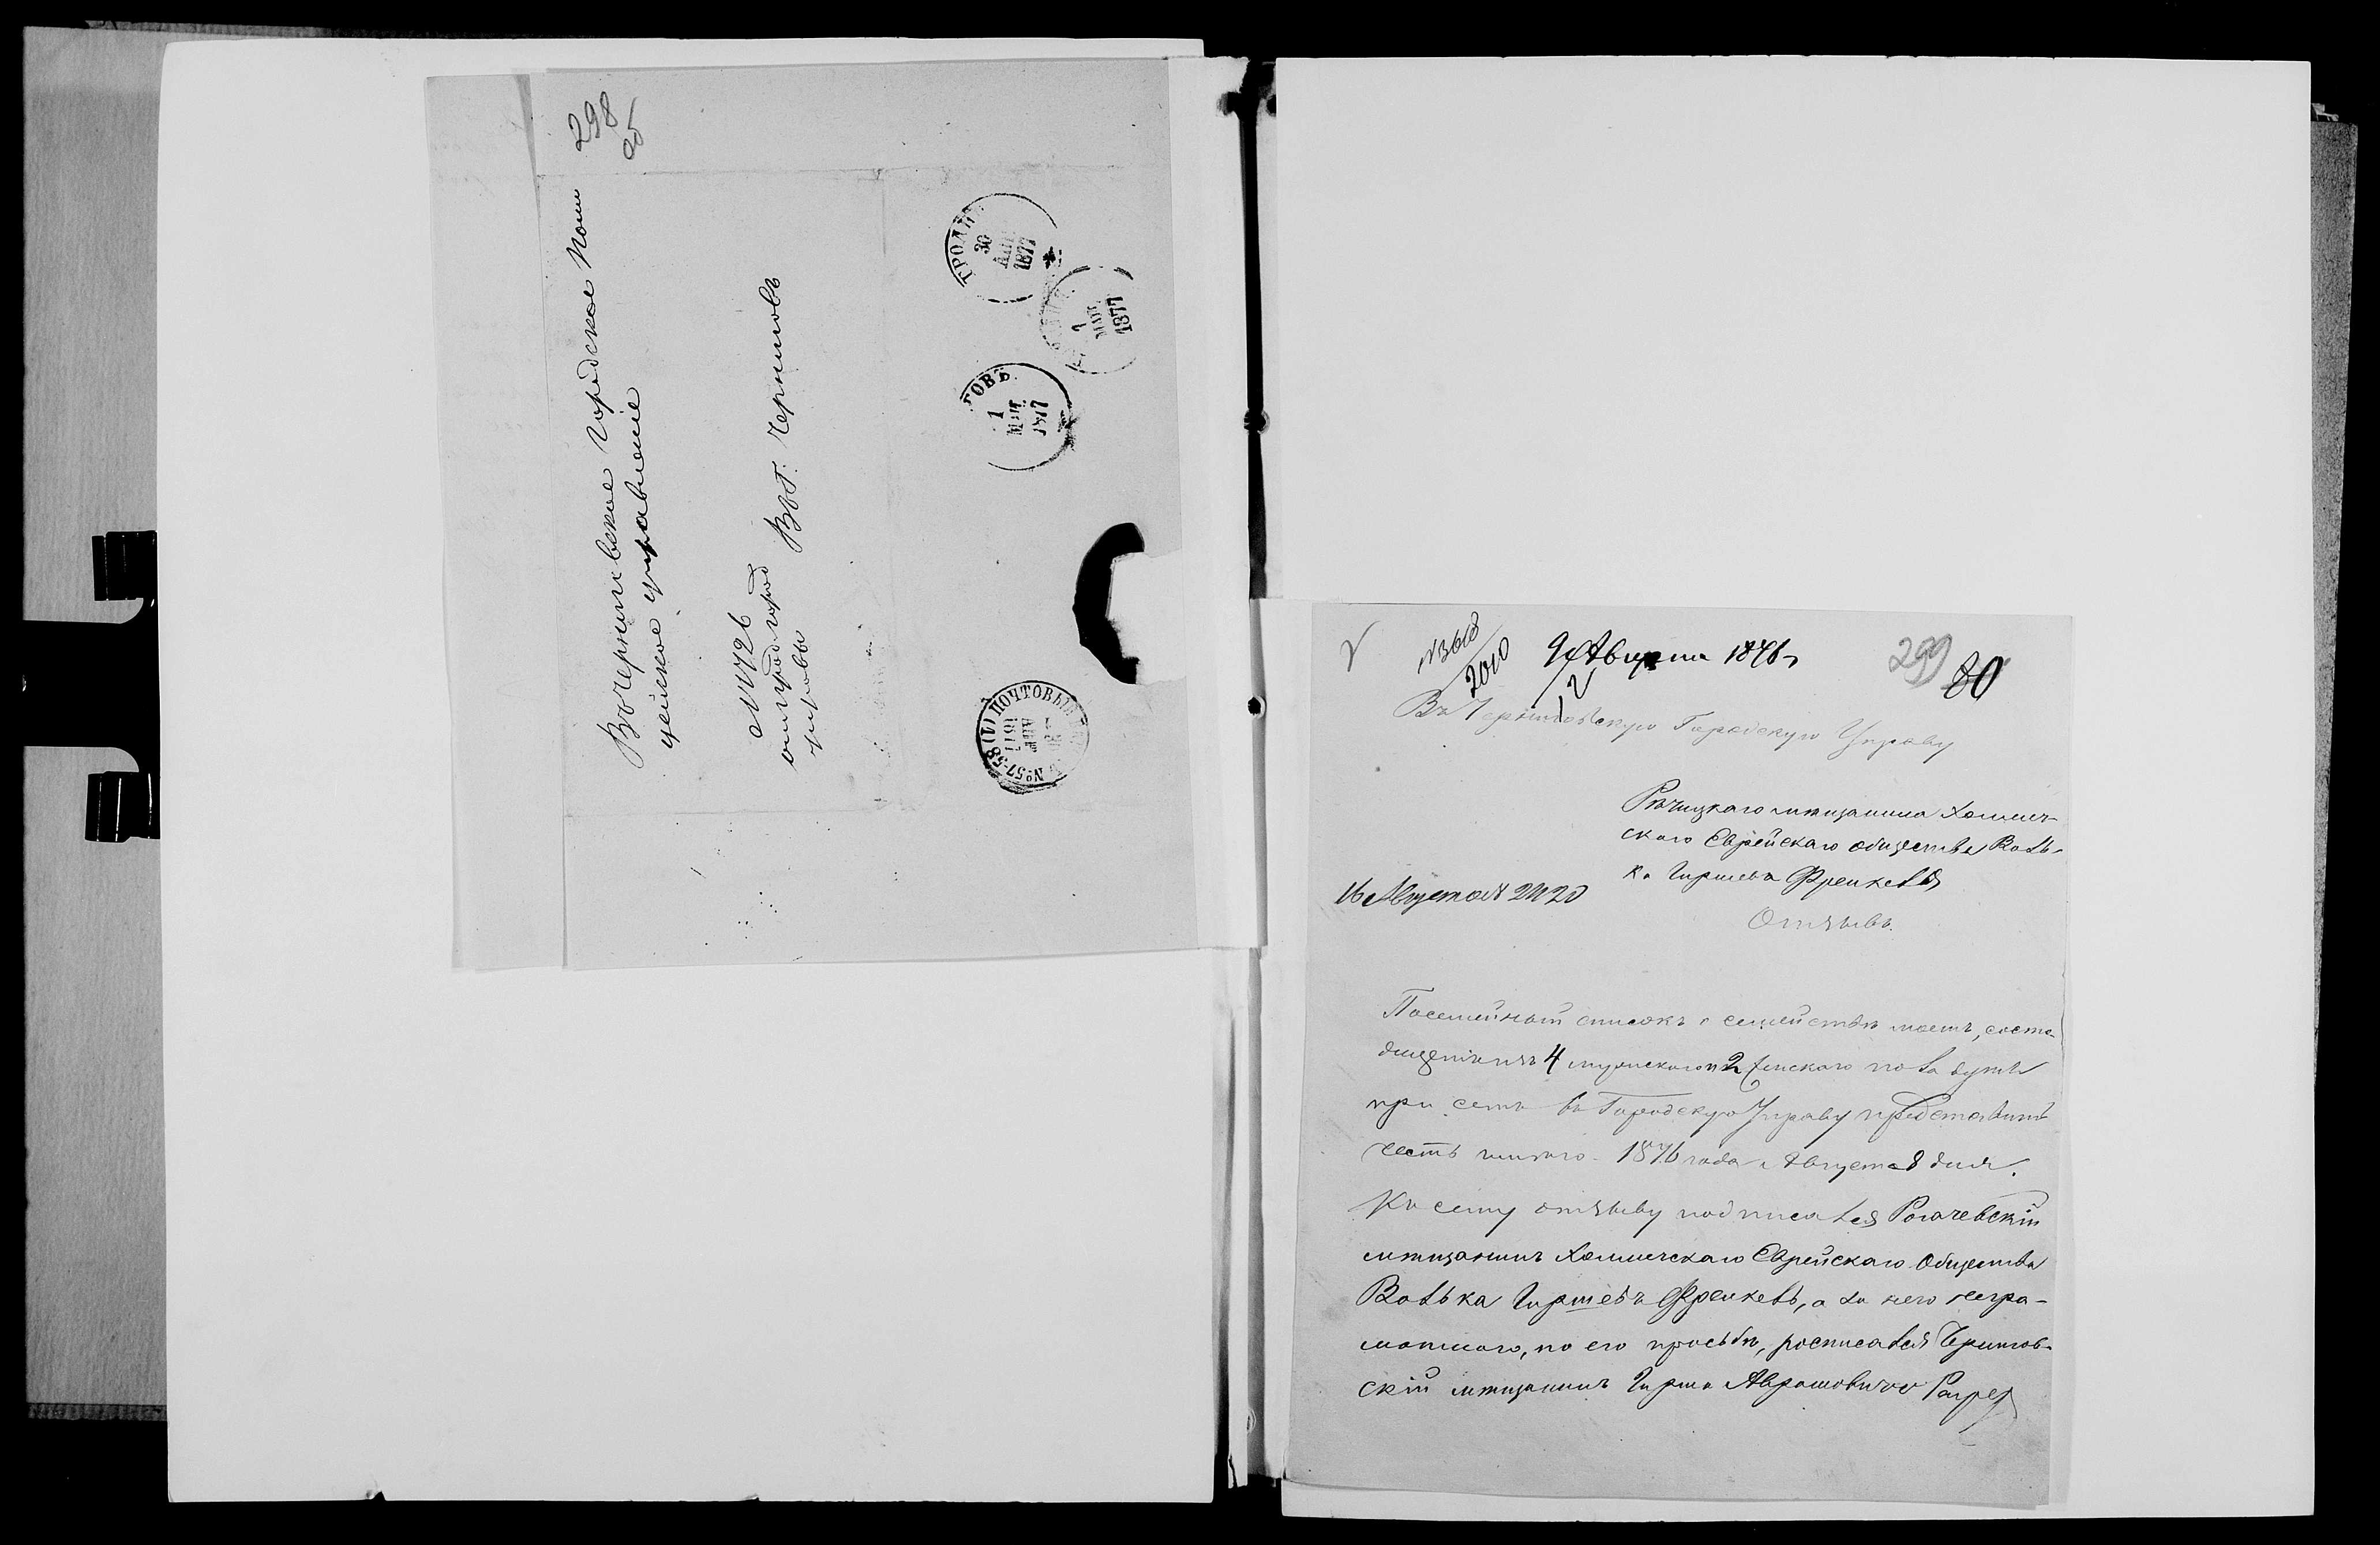 298
об
Въ Черниговское Городское Поли
цейское управленіе
№ 1726
отъ город город
управы
Въ Г. Черниговъ
30
АПР.
1877
1
МАЯ
1877
ГОВЪ
1
МАЯ
1877
ПОЧТОВЫЙ
№ 57-58 (4)
9 Августа 1876 г
299
80
2010
12
Въ Черниговскую Городскую Управу
Рѣчицкаго мѣщанина Холмеч-
скаго Еврейскаго общества Воль-
ка Гиршева Френкеля
16 Августа 2420
Отзывъ.
Посемейный списокъ о семействѣ моемъ, состо
ящемъ изъ 4 мужскаго и 2 женскаго пола душъ
при семъ въ Городскую Управу представить
честь имѣю. 1876 года Августа 8 дня.
Къ сему отзыву подписался Рогачевскій
мѣщанинъ Холмечскаго Еврейскаго Общества
Волька Гиршевъ Френкель, а за него негра-
мотнаго, по его просьбѣ, росписался Чернигов-
скій мѣщанинъ Гирша Абрамовичъ